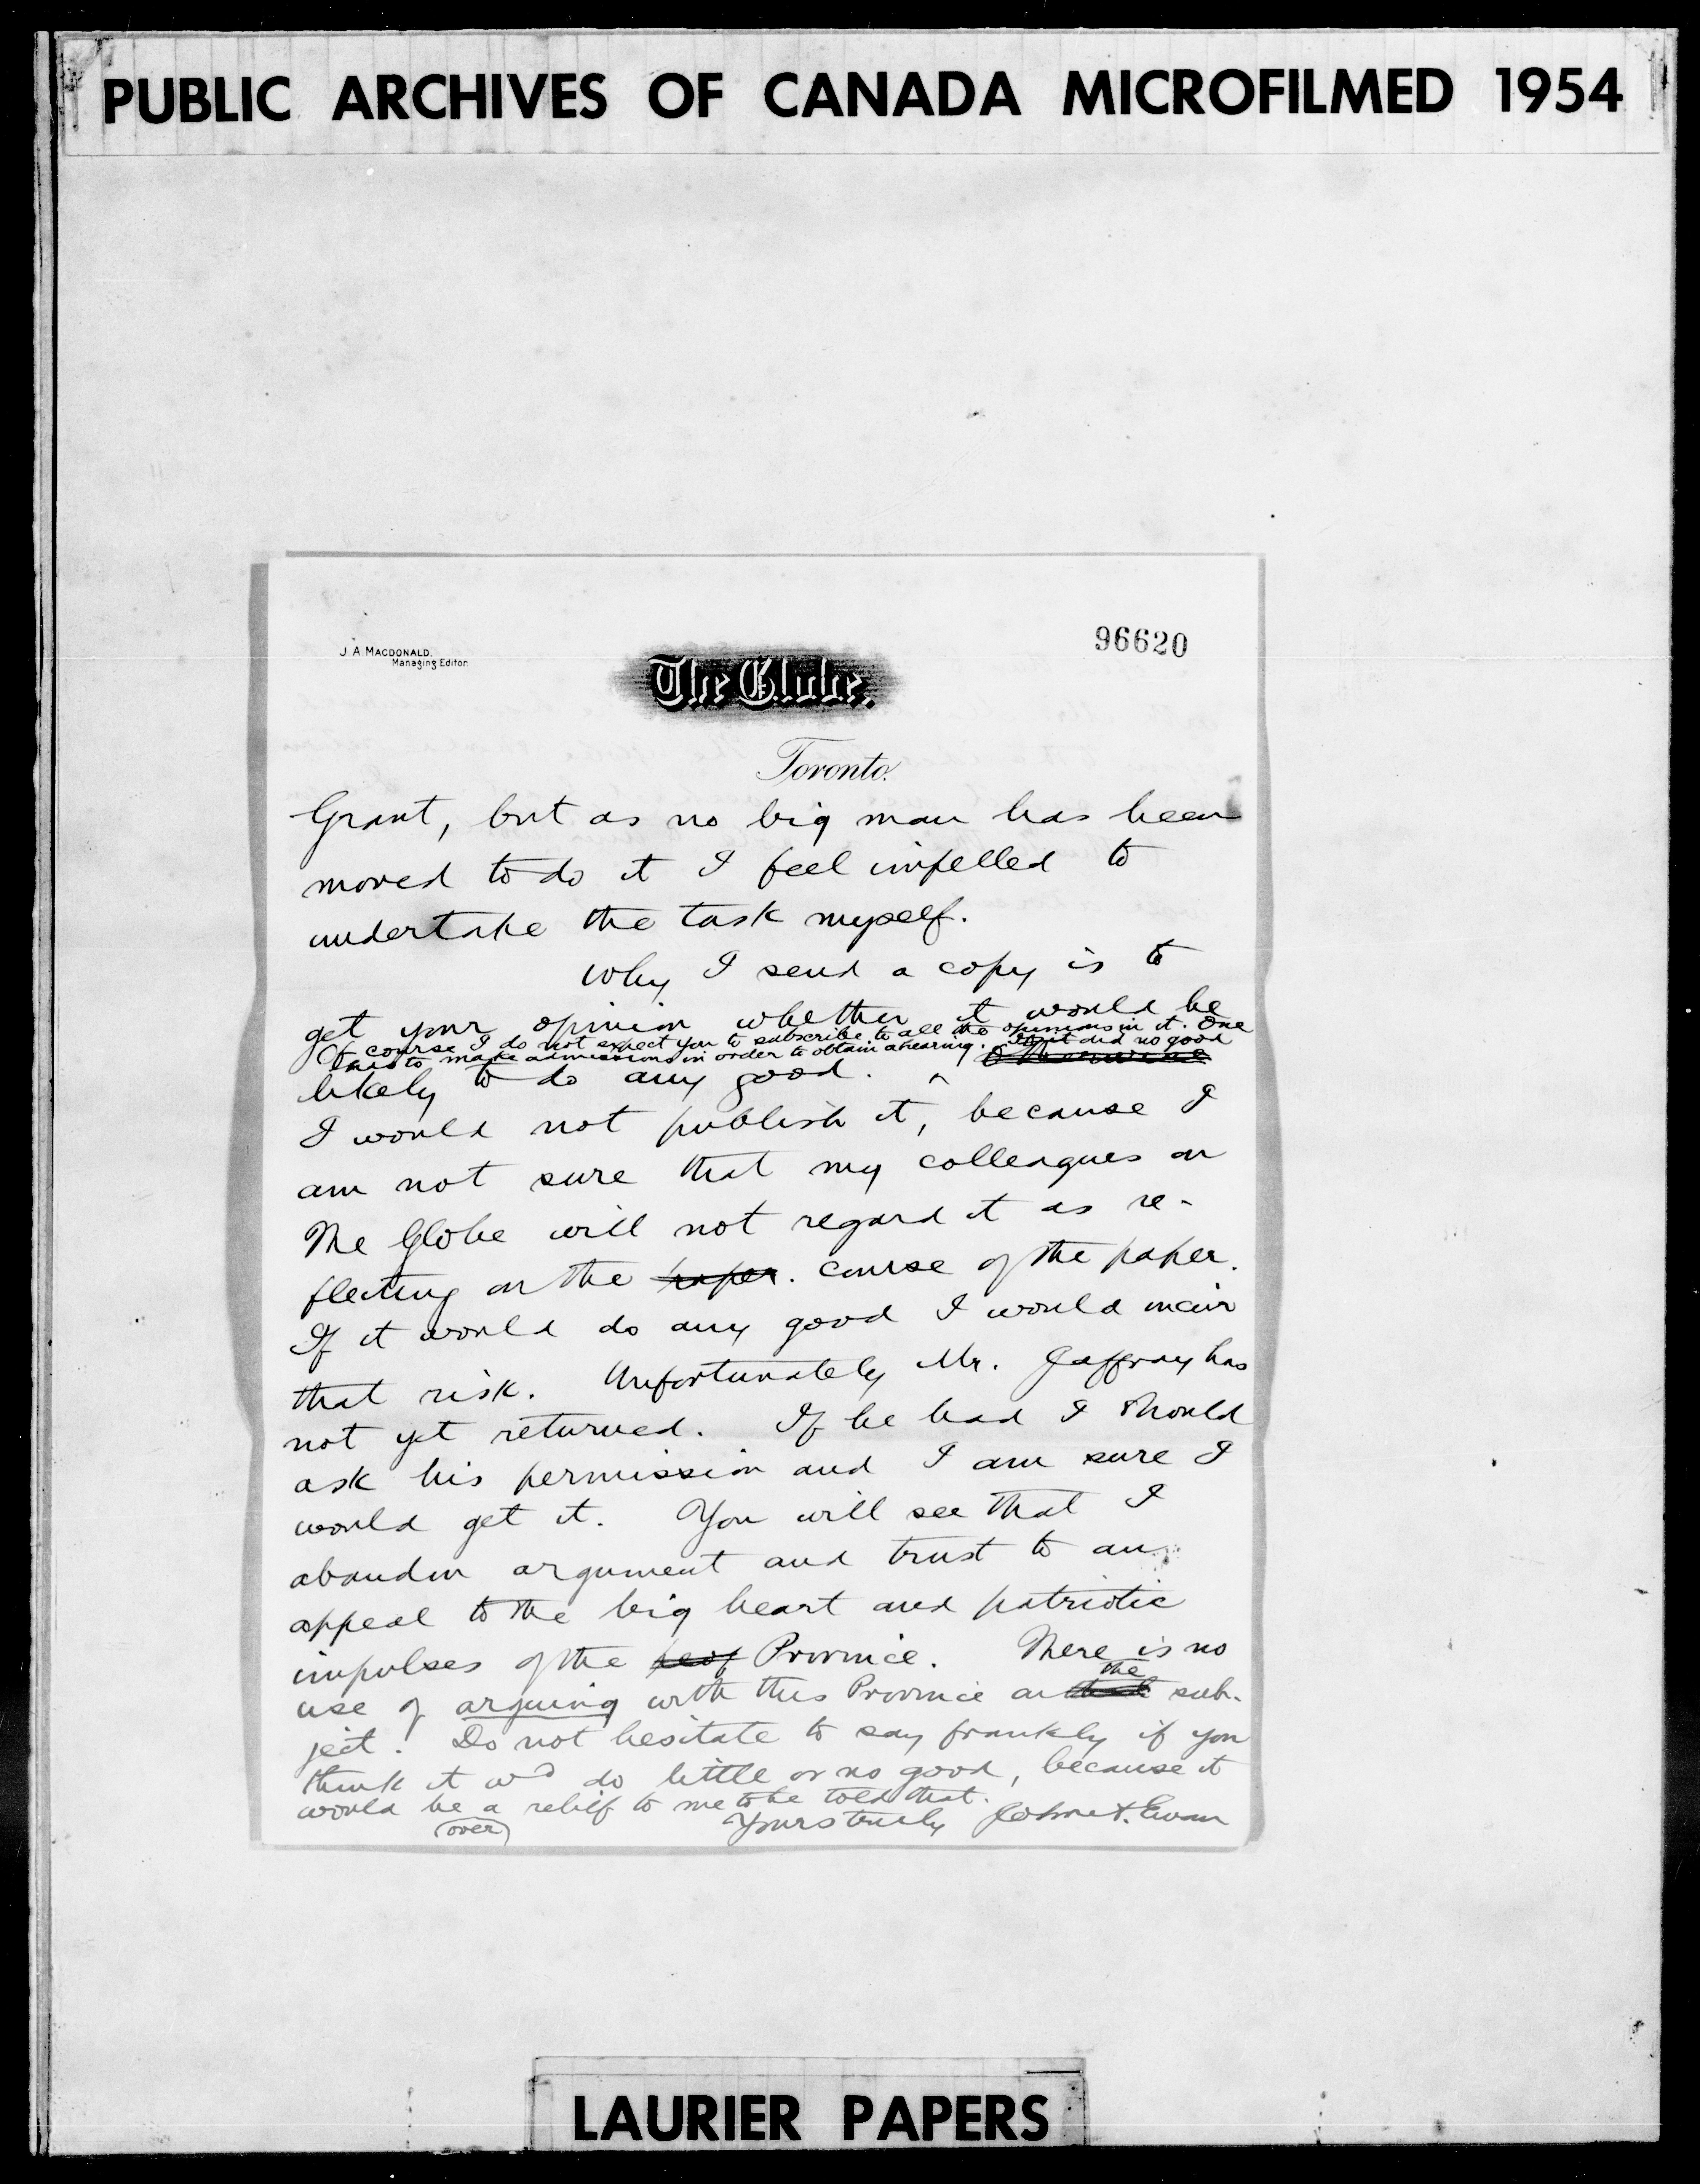 PUBLIC ARCHIVES OF CANADA MICROFILMED 1954
96620
J. A. MACDONALD.
Managing Editor.
The Globe.
Toronto.
Grant, but as no big man has been
moved to do it I feel impelled to
undertake the task myself.
Why I send a copy is to
get your opinion whether it would be
Of course I do not expect you to subscribe to all the opinions in it. One
has to make admissions in order to obtain a hearing. If it did no good
Otherwise
likely to do any good. ^
I would not publish it, because I
am not sure that my colleagues on
The Globe will not regard it as re-
flecting on the paper. course of the paper.
If it would do any good I would incur
that risk. Unfortunately Mr. Jaffray has
not yet returned. If he had I should
ask his permission and I am sure I
would get it. You will see that I
abandon argument and trust to an
appeal to the big heart and patriotic
impulses of the Province. There is no
the
use of arguing with this Province on sub-
ject. Do not hesitate to say frankly if you
think it wd do little or no good, because it
would be a relief to me to be told that.
(over)
Yours truly John A. Ewan
LAURIER PAPERS